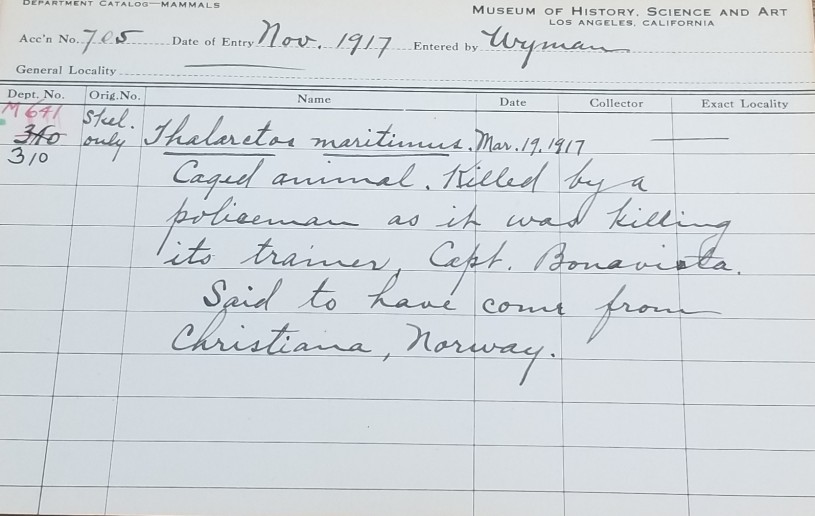 DEPARTMENT CATALOG—MAMMALS
MUSEUM OF HISTORY, SCIENCE AND ART
LOS ANGELES, CALIFORNIA
Acc'n No. 705 Date of Entry Nov. 1917 Entered by Wyman
General Locality
Dept. No. Orig. No. Name Date Collector Exact Locality
M 641 Skel.
310 only Thalarctos maritimus. Mar. 19, 1917
310
Caged animal. Killed by a
policeman as it was killing
its trainer, Capt. Bonavista.
Said to have come from
Christiana, Norway.